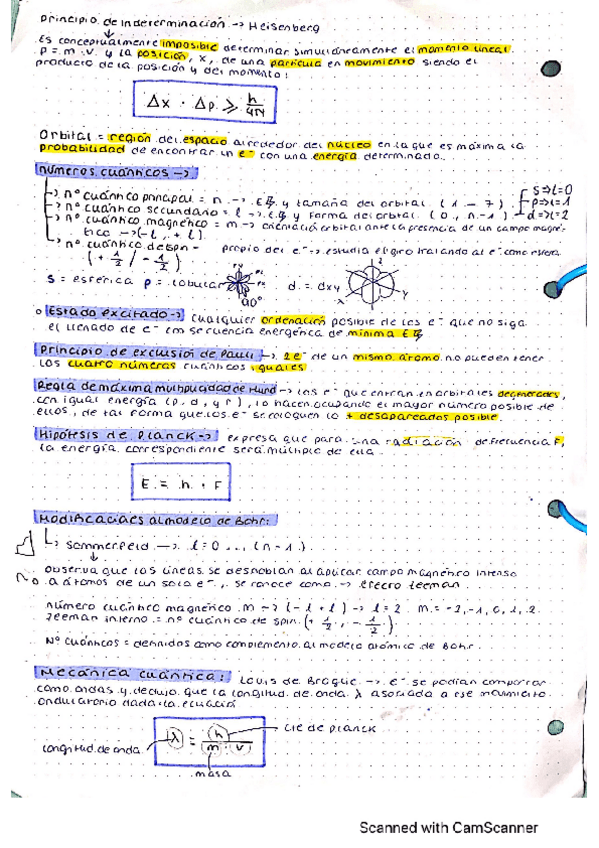 Principio de indeterminación → Heisenberg
Es conceptualmente imposible determinar simultáneamente el momento lineal
p = m · v. y la posición, x, de una partícula en movimiento siendo el
producto de la posición y del momento:
Δx · Δp ⩾ h/4π
Orbital = región del espacio alrededor del núcleo en la que es máxima la
probabilidad de encontrar un e⁻ con una energía determinado.
números cuánticos →
nº cuántico principal = n → Eg y tamaña del orbital (1 - 7)
s ⇒ l=0
p ⇒ l=1
d ⇒ l=2
nº cuántico secundario = l → Eg y forma del orbital (0, n-1)
nº cuántico magnético = m → orientación orbital ante la presencia de un campo magné-
tico → (-l, +l)
nº cuántico de spn - propio del e⁻ → estudia el giro tratando al e⁻ como esfera
(+ 1/2 / - 1/2)
s = esférica p = lobular d = dxy
90°
z
x
y
Estado excitado → cualquier ordenación posible de los e⁻ que no siga
el llenado de e⁻ em secuencia energética de mínima Eg
Principio de exclusión de Pauli → 2 e⁻ de un mismo átomo no pueden tener
los cuatro números cuánticos iguales
Regla de máxima multiplicidad de Hund → los e⁻ que entran en orbitales degenerados,
con igual energía (p, d, y f), lo hacen ocupando el mayor número posible de
ellos, de tal forma que los e⁻ se coloquen lo + desapareados posible.
Hipótesis de Planck → expresa que para una radiación de frecuencia F,
la energía correspondiente será múltiplo de ella.
E = h · F
Modificaciones al modelo de Bohr:
Sommerfeld → l = 0 ... (n - 1)
Observa que los líneas se desdoblan al aplicar campo magnético intenso
No a átomos de un solo e⁻, se conoce como → efecto Zeeman
número cuántico magnético m → (-l + l) → l = 2 m = -2, -1, 0, 1, 2.
Zeeman interno = nº cuántico de spin (+ 1/2, - 1/2)
Nº cuánticos = definidos como complemento al modelo atómico de Bohr.
Mecánica cuántica: Louis de Broglie → e⁻ se podían comportar
como ondas y dedujo que la longitud de onda λ asociada a ese movimiento
ondulatorio dada la ecuación
λ = h / m · v
cte de Planck
longitud de onda
masa
Scanned with CamScanner